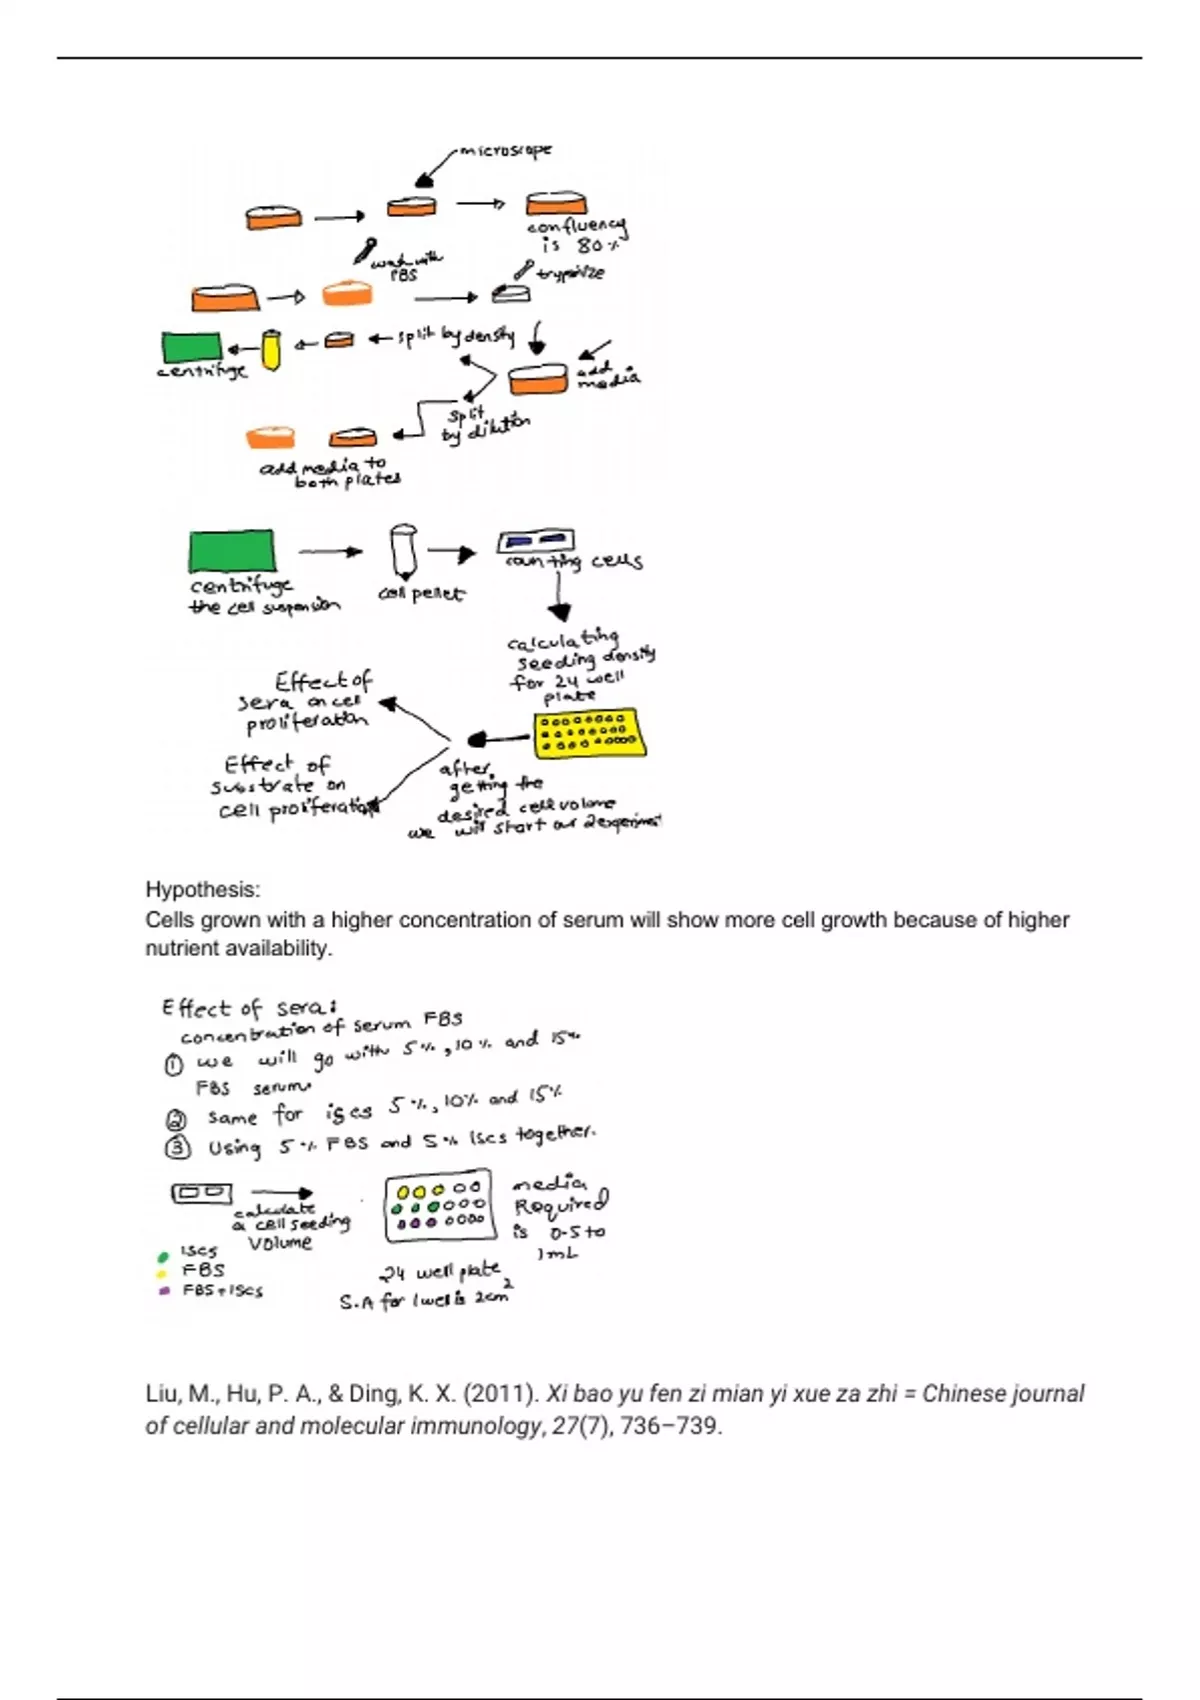 microscope
confluency
is 80%
wash with
PBS
trypsinize
split by density
centrifuge
add
media
split
by dilution
add media to
both plates
centrifuge
the cell suspension
cell pellet
counting cells
calculating
seeding density
for 24 well
plate
Effect of
sera on cell
proliferation
Effect of
substrate on
cell proliferation
after
getting the
desired cell volume
we will start our 2 experiment
Hypothesis:
Cells grown with a higher concentration of serum will show more cell growth because of higher
nutrient availability.
Effect of sera:
concentration of serum FBS
① we will go with 5%, 10% and 15%
FBS serum
② same for iscs 5%, 10% and 15%
③ Using 5% FBS and 5% Iscs together.
calculate
a cell seeding
volume
ISCS
FBS
FBS + ISCS
media
Required
is 0.5 to
1mL
24 well plate
S.A for 1 well is 2cm²
Liu, M., Hu, P. A., & Ding, K. X. (2011). Xi bao yu fen zi mian yi xue za zhi = Chinese journal
of cellular and molecular immunology, 27(7), 736–739.